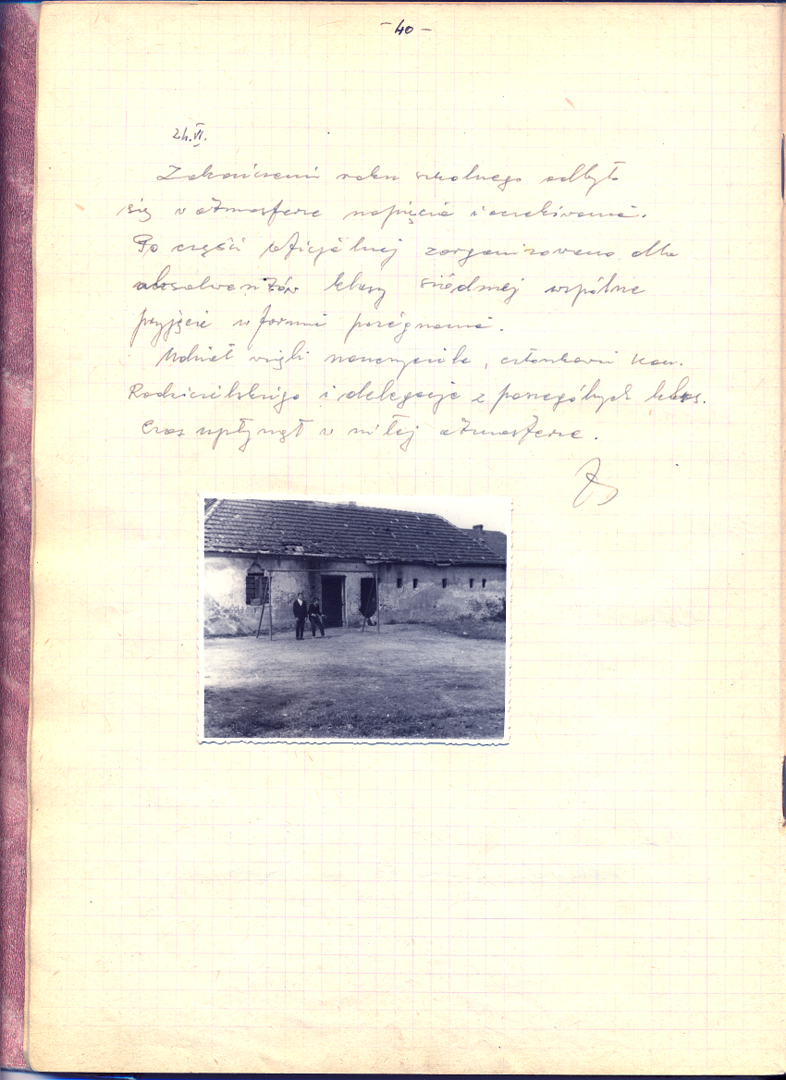 - 40 -
24.VI.
Zakończenie roku szkolnego odbyło
się w atmosferze napięcia i oczekiwania.
Po części oficjalnej zorganizowano dla
absolwentów klasy siódmej wspólne
przyjęcie w formie pożegnania.
Udział wzięli nauczyciele, członkowie Kom.
Rodzicielskiego i delegacje z poszczególnych klas.
Czas upłynął w miłej atmosferze.